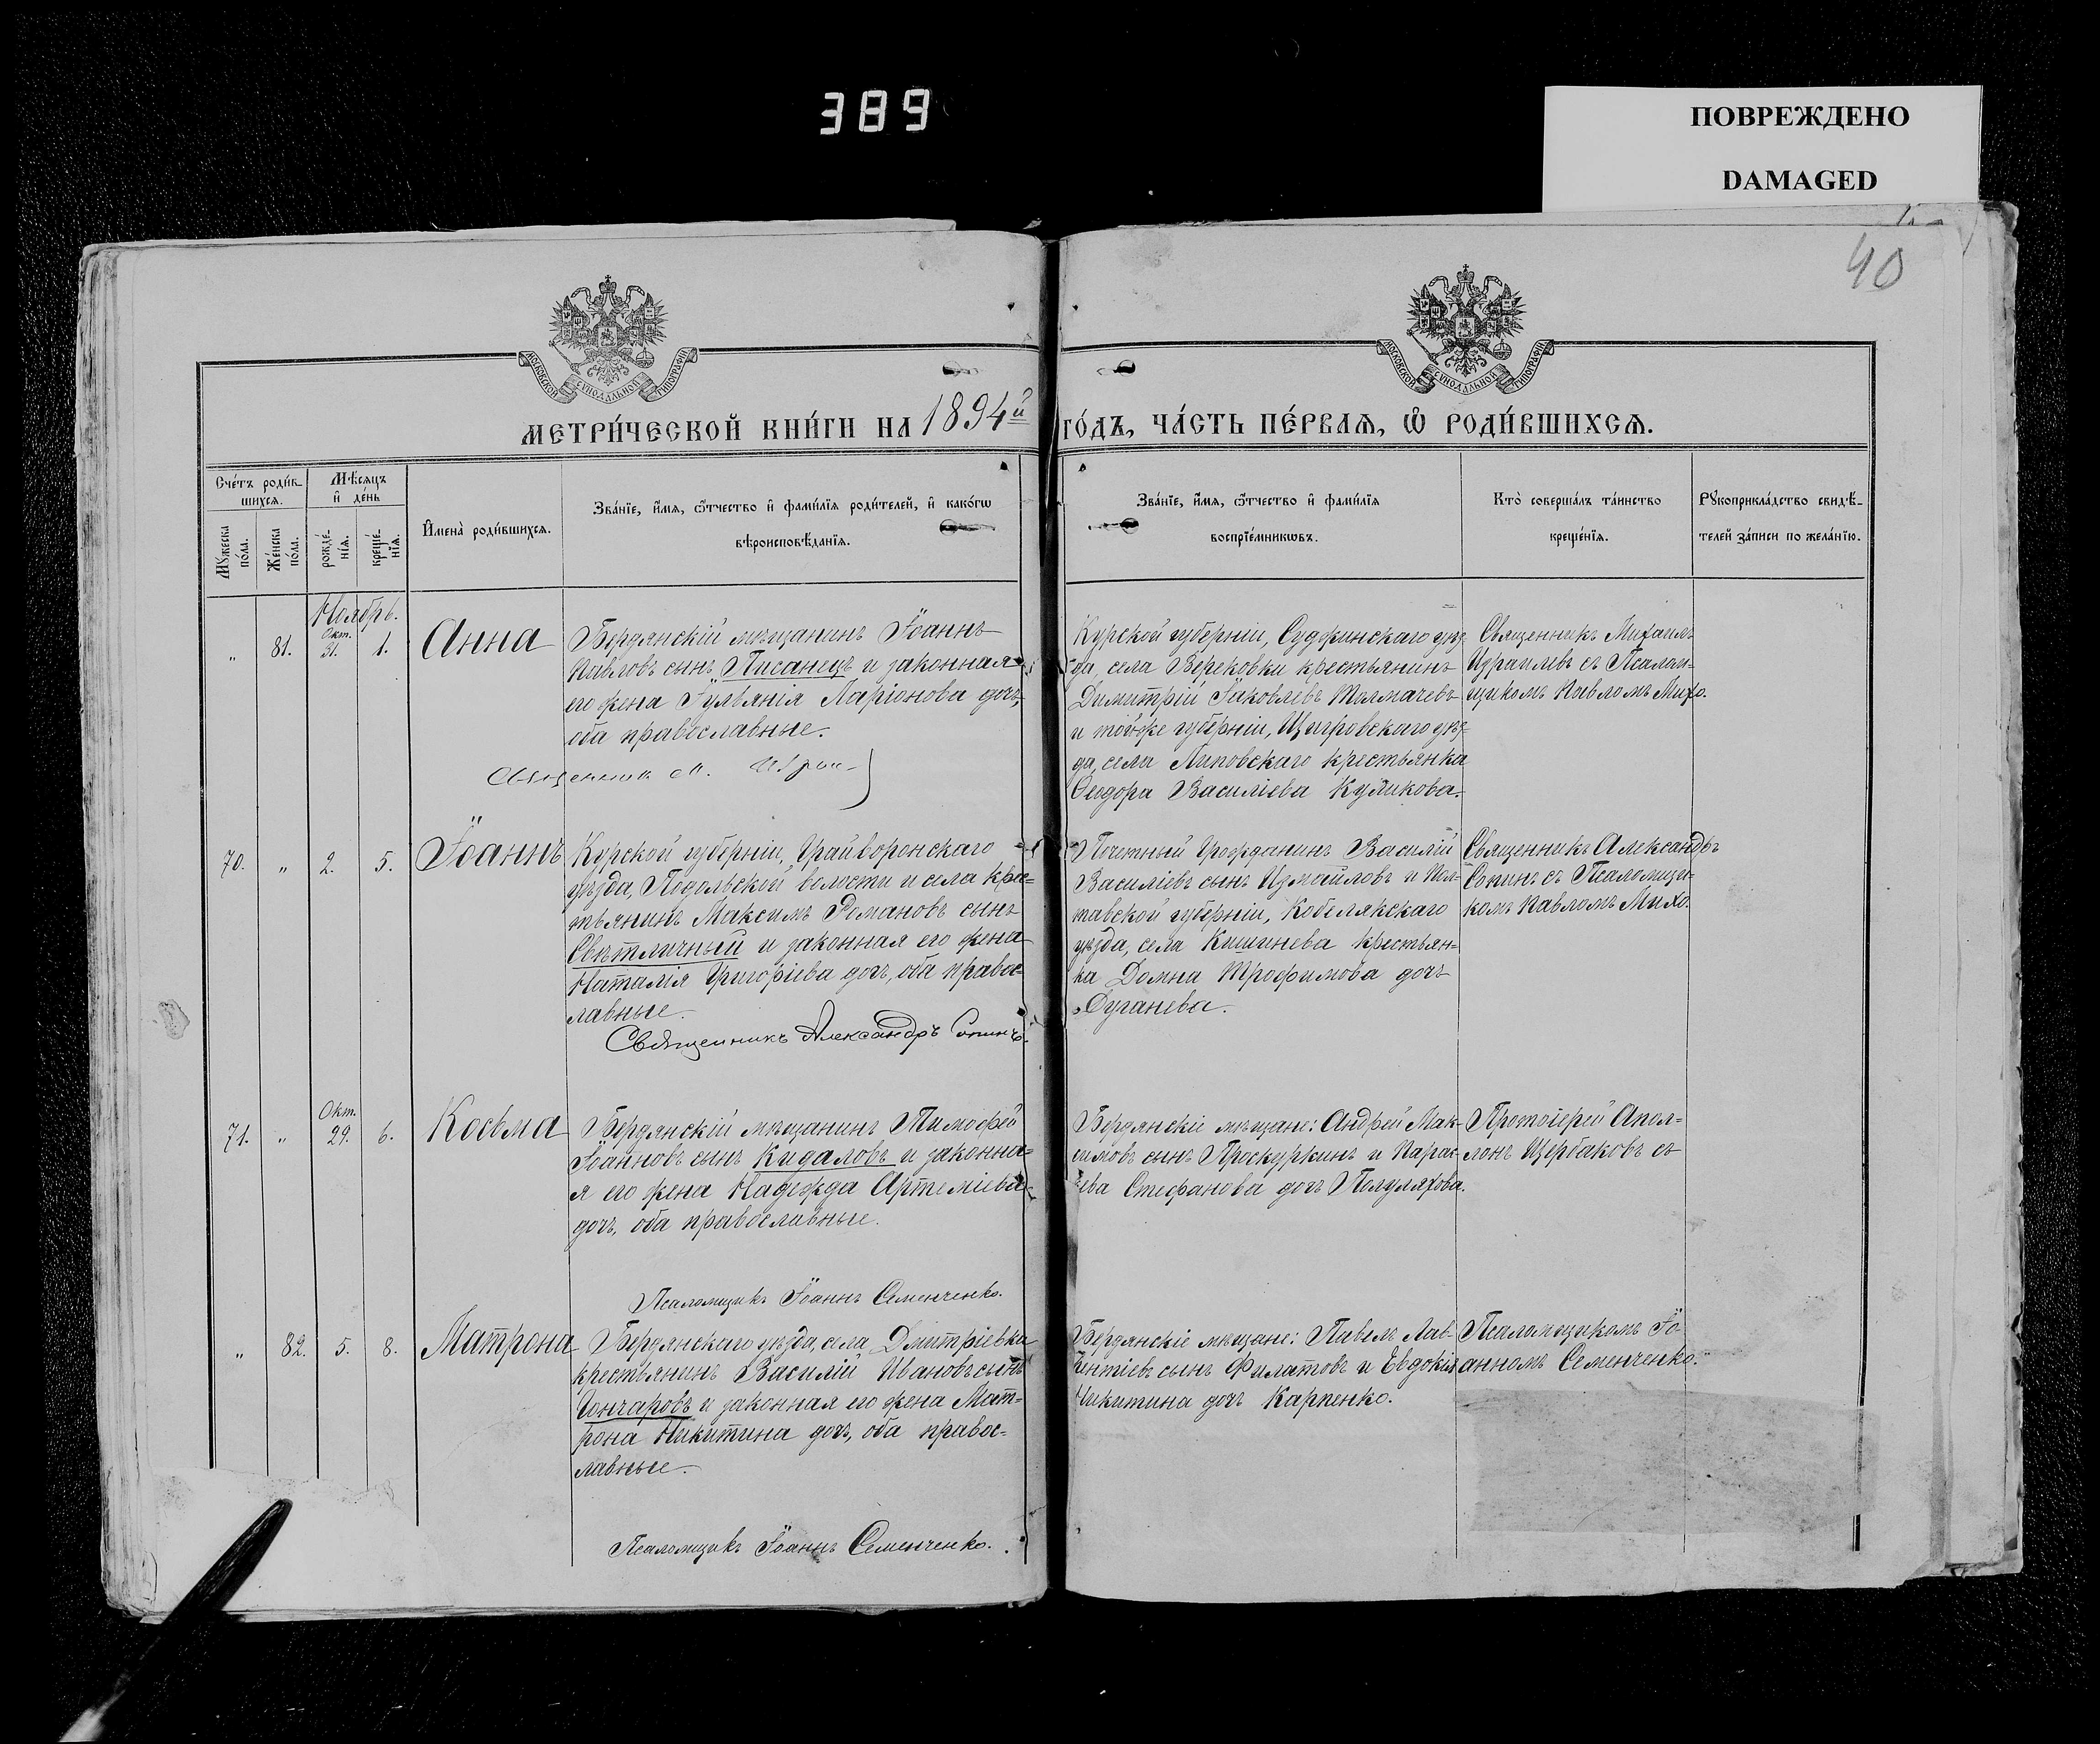 389
ПОВРЕЖДЕНО
DAMAGED
40
МОСКОВСКОЙ СѴНОДАЛЬНОЙ ТИПОГРАФІИ
МОСКОВСКОЙ СѴНОДАЛЬНОЙ ТИПОГРАФІИ
МЕТРИ́ЧЕСКОЙ КНИ́ГИ НА 1894й ГО́ДЪ, ЧА́СТЬ ПЕ́РВАѦ, Ѡ҆ РОДИ́ВШИХСѦ.
Сче́тъ роди́в-
шихсѧ.
Мѣ́сѧцъ
и҆ де́нь
Мꙋ́жеска
по́ла.
Же́нска
по́ла.
рожде́-
нїѧ.
креще́-
нїѧ.
И҆мена̀ роди́вшихсѧ.
Зва́нїе, и҆́мѧ, ѻ҆́тчество и҆ фами́лїѧ роди́телей, и҆ како́гѡ
вѣроисповѣ́данїѧ.
Зва́нїе, и҆́мѧ, ѻ҆́тчество и҆ фами́лїѧ
воспрїе́мникѡвъ.
Кто̀ соверша́лъ та́инство
креще́нїѧ.
Рꙋкоприкла́дство свидѣ́-
телей за́писи по жела́нїю.
Ноябрь.
„ 81. Окт. 31. 1. Анна
Бердянскій мѣщанинъ Іоаннъ
Павловъ сынъ Писанецъ и законная
его жена Іуліанія Ларіонова дочь,
оба православные.
Священник М.
Курской губерніи, Суджинскаго уѣз-
да, села Верековки крестьянинъ
Димитрій Іаковлевъ Толмачевъ
и той-же губерніи, Щигровскаго уѣз-
да, села Липовскаго крестьянка
Ѳеодора Василіева Куликова.
Священникъ Михаилъ
Израилевъ съ Псалом-
щикомъ Павломъ Михо.
70. „ 2. 5. Іоаннъ
Курской губерніи, Грайворонскаго
уѣзда, Подольской волости и села крес-
тьянинъ Максимъ Романовъ сынъ
Свѣтличный и законная его жена
Наталія Григоріева дочь, оба правос-
лавные.
Священникъ Александръ Сопинъ.
Почетный Гражданинъ Василій
Василіевъ сынъ Измайловъ и Пол-
тавской губерніи, Кобелякскаго
уѣзда, села Кишинева крестьян-
ка Домна Трофимова дочь
Дуганева.
Священникъ Александръ
Сопинъ съ Псаломщи-
комъ Павломъ Михо.
71. „ Окт. 29. 6. Косьма
Бердянскій мѣщанинъ Тимофей
Іоанновъ сынъ Кидаловъ и законна-
я его жена Надежда Артеміева
дочь, оба православные.
Псаломщикъ Іоаннъ Семенченко.
Бердянскіе мѣщане: Андрей Мак-
симовъ сынъ Проскуркинъ и Парас-
ева Стефанова дочь Полуляхова.
Протоіерей Апол-
лонъ Щербаковъ съ
„ 82. 5. 8. Матрона
Бердянскаго уѣзда, села Дмитріевка
крестьянинъ Василій Ивановъ сынъ
Гончаровъ и законная его жена Мат-
рона Никитина дочь, оба правос-
лавные.
Псаломщикъ Іоаннъ Семенченко.
Бердянскіе мѣщане: Павелъ Лав-
рентіевъ сынъ Филатовъ и Евдокія
Никитина дочь Карпенко.
Псаломщикомъ Іо-
анномъ Семенченко.